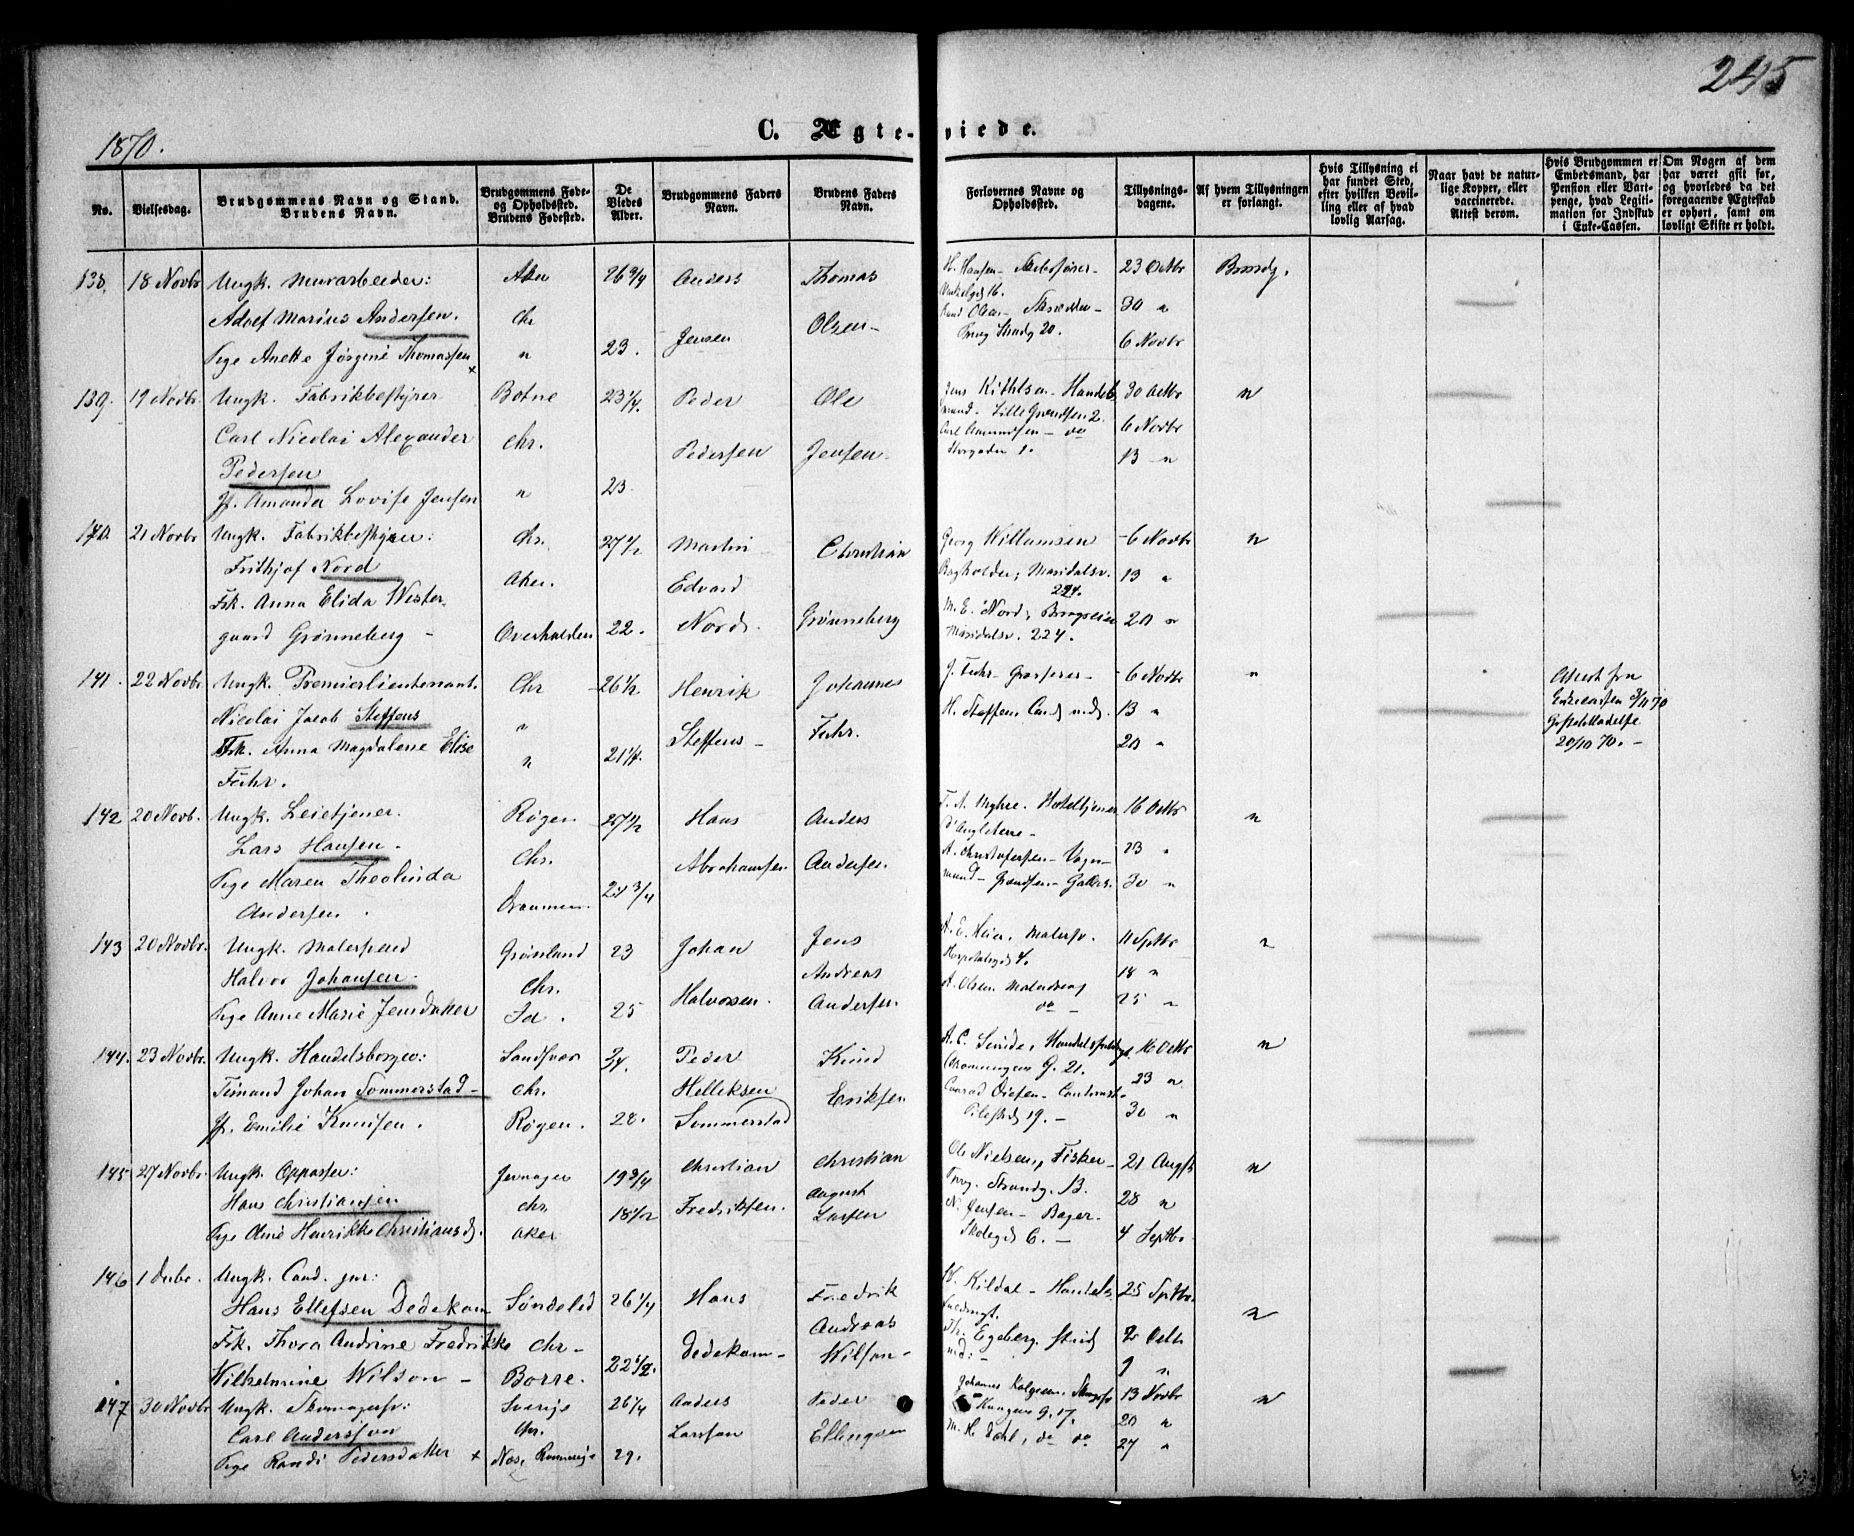 245
1870.
C. Ægte-viede.
No.
Vielsesdag.
Brudgommens Navn og Stand.
Brudens Navn.
Brudgommens Føde-
og Opholdssted.
Brudens Fødested.
De
Viedes
Alder.
Brudgommens Faders
Navn.
Brudens Faders
Navn.
Forlovernes Navne og
Opholdssted.
Tillysnings-
dagene.
Af hvem Tillysningen
er forlangt.
Hvis Tillysning ei
har fundet Sted,
efter hvilken Bevil-
ling eller af hvad
lovlig Aarsag.
Naar havt de natur-
lige Kopper, eller
vaccinerede.
Attest derom.
Hvis Brudgommen er
Embedsmand, har
Pension eller Vart-
penge, hvad Legiti-
mation for Indskud
i Enke-Cassen.
Om Nogen af dem
har været gift før,
og hvorledes da det
foregaaende Ægteskab
er ophørt, samt om
lovligt Skifte er holdt.
138. 18 Novbr Ungk. Murarbeider: Aker 26 3/4 Anders Thomas 23 Octbr Brudg.
Adolf Marius Andersen. Chr Jensen Olsen 30 "
Pige Anette Jørgine Thomassen " 23. 6 Novbr
139. 19 Novbr. Ungk. Fabrikbestyrer Botne 23 1/4. Peder Ole 30 Octbr "
Carl Nicolai Alexander Chr. Pedersen Jensen Lille Grændsen 2. 6 Novbr
Pedersen Carl Amundsen - do 13 "
Jf. Amanda Lovise Jensen " 23.
140. 21 Novbr Ungk. Fabrikbestyrer: Chr. 27 1/2 Martin Christian Georg Willumsen 6 Novbr "
Frithjof Nord Aker. Edvard Bogholder, Maridalsv. 13 "
224.
Frk. Anna Elida Wester- M. E. Nord, Brugseier 20 "
gaard Grønneberg - Overhalden 22. Nord. Grønneberg Maridalsv. 224.
141. 22 Novbr. Ungk. Premierlieutenant. Chr 26 1/2 Henrik Johannes J. Fuhr - Grosserer - 6 Novbr " Attest fra
Nicolai Jacob Steffens " Steffens - Fuhr. H. Steffens Cand. med. 13 " Enkecassen 3/11 70
Frk. Anna Magdalene Elise " 21 1/4. 20 "
Fuhr. 20/10 70. -
142 20 Novb. Ungk. Leietjener. Røgen 27 1/2 Hans Anders 16 Octbr "
Lars Hansen. Chr. Abrahamsen Andersen. d'Angleterre - 23 "
Pige Maren Theolinda 24 3/4 A. Christofersen - Vogn-
Andersen. Drammen. mand - Grændsen - 30 "
143 20 Novbr. Ungk. Malersvend Grønland 23 Johan Jens A. E. Heier, Malersv. 11 Septbr "
Halvor Johansen. Chr. Halvorsen. Andreas 18 "
Pige Anne Marie Jensdatter Id. 25 Andersen. A. Olsen 25 "
144. 23 Novbr. Ungk. Handelsborger: Sandsvær Peder Knud 16 Octbr "
Johan Sommerstad - Chr. Helleksen Eriksen 23 "
Jf. Emilie Knudsen. Røgen. 28. Sommerstad Pilestræd 19. - 30 "
145 27 Novbr. Ungk. Oppasser: Jevnager 19 3/4 Christian Christian Ole Nielsen, Fisker - 21 Augst "
Hans Christiansen Chr. Fredriksen. August Strandg. 28 "
Pige Henrikke Christiansd. Aker 18 1/2 Larsen N. Jensen - Bager. 4 Septbr
Skoleg 6. -
146 1 Decbr. Ungk. Cand. jur: Søndeled 26 1/4 Hans Fredrik Kildal - Handels- 25 Septbr "
Hans Ellefsen Dedekam Chr - Dedekam - Andreas Th. Egeberg, stud. 2 Octb
Frk. Thora Andrine Fredrikke Wilson - med: - 9 "
Wilhelmine Wilson - Borre. 22 1/2.
147 30 Novbr Ungk. Skomagersv: Sverige 26 1/4 Anders Peder 13 Novbr "
Carl Andersson Chr. Larsson Ellingsen 20 "
Pige Randi Pedersdatter Næs, Romerige 29. M. H. Dahl, do do 27 "